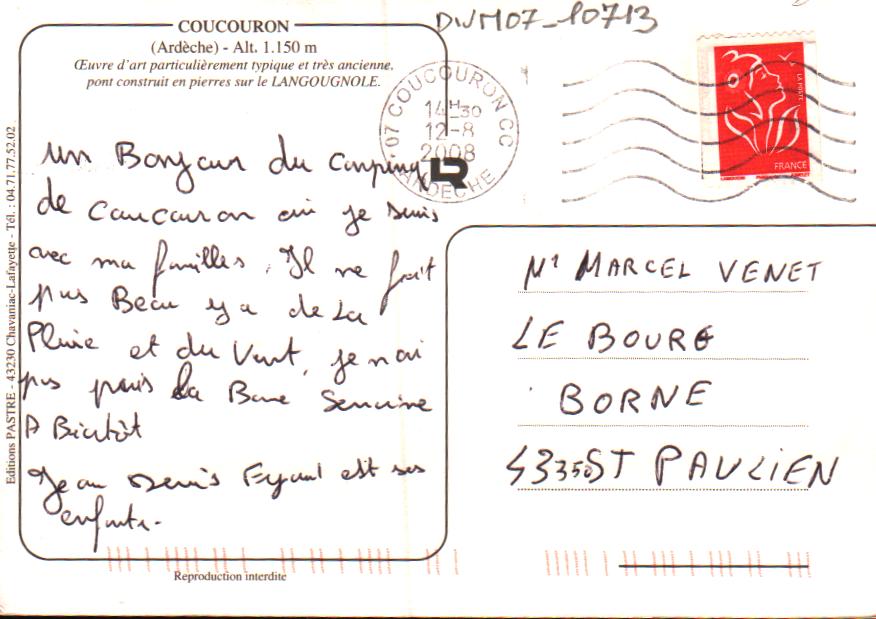 DVM07_10713
COUCOURON
(Ardèche) - Alt. 1.150 m
Œuvre d'art particulièrement typique et très ancienne,
pont construit en pierres sur le LANGOUGNOLE.
07 COUCOURON CC
14H30
12-8
2008
ARDECHE
LA POSTE
FRANCE
un Bonjour du Camping
de Coucouron où je suis
avec ma familles. Il ne fait
pas Beau y a de La
Pluie et du Vent, je n ai
pas pris la Bone Semaine
A Bientôt
Jean Denis et ses
enfants.
Mr MARCEL VENET
LE BOURG
BORNE
43350 ST PAULIEN
Editions PASTRE - 43230 Chavaniac-Lafayette - Tél. : 04.71.77.52.02
Reproduction interdite